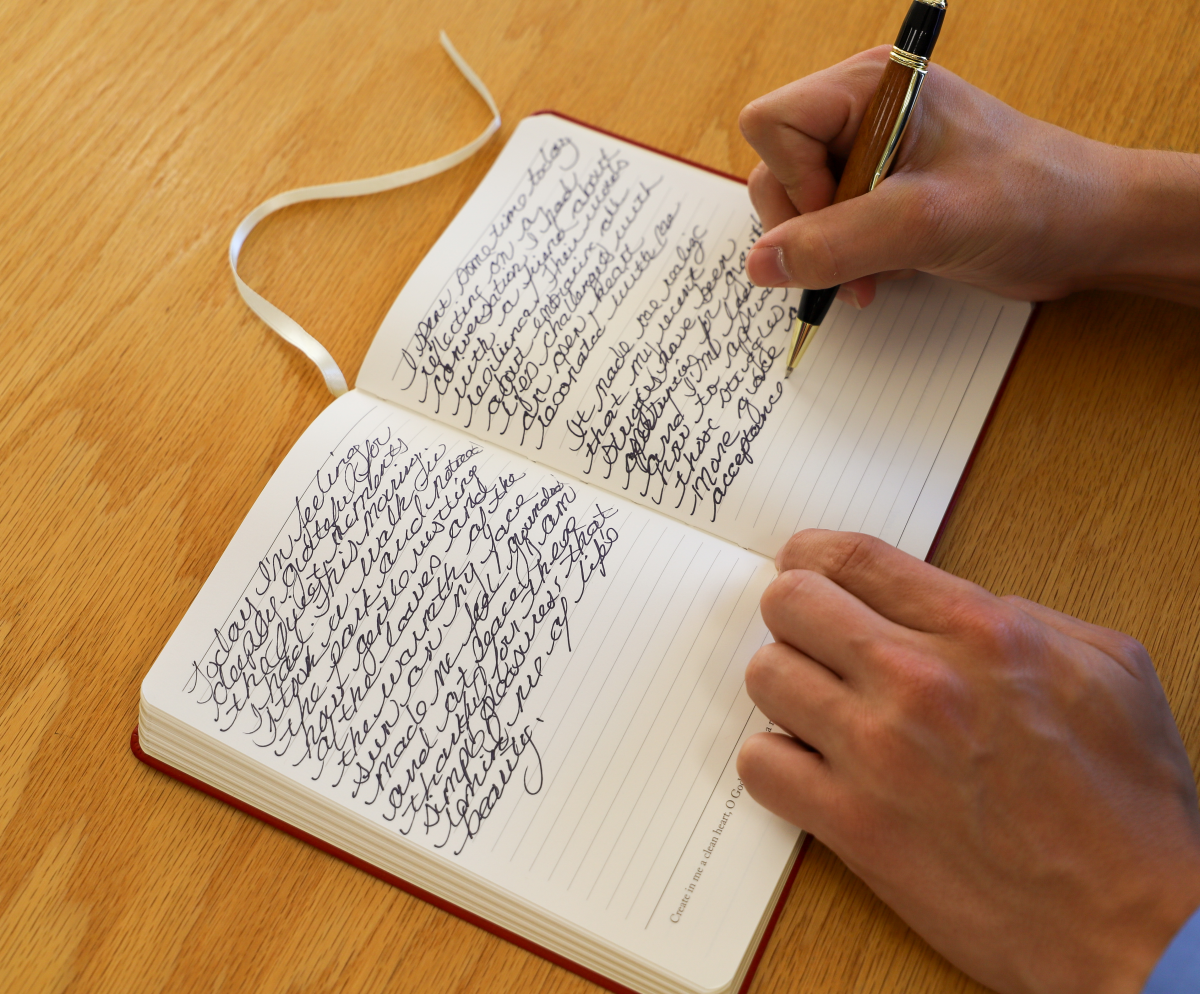 Today I'm feeling
deeply grateful for
the quiet moments
I had this morning.
I took a walk in
the park and noticed
how gentle rustling
of the leaves and
the warmth of the
sun on my face
made me feel grounded
and at peace. I am
thankful for these
simple pleasures that
remind me of life's
beauty.
Create in me a clean heart, O God
I spent some time today
reflecting on a
conversation I had
with a friend about
resilience. Their words
about embracing all
life's challenges with
an open heart
resonated with me.
It made me realize
that my recent
struggles have been
opportunities for growth
and I'm
how to approach
these
more grace
acceptance